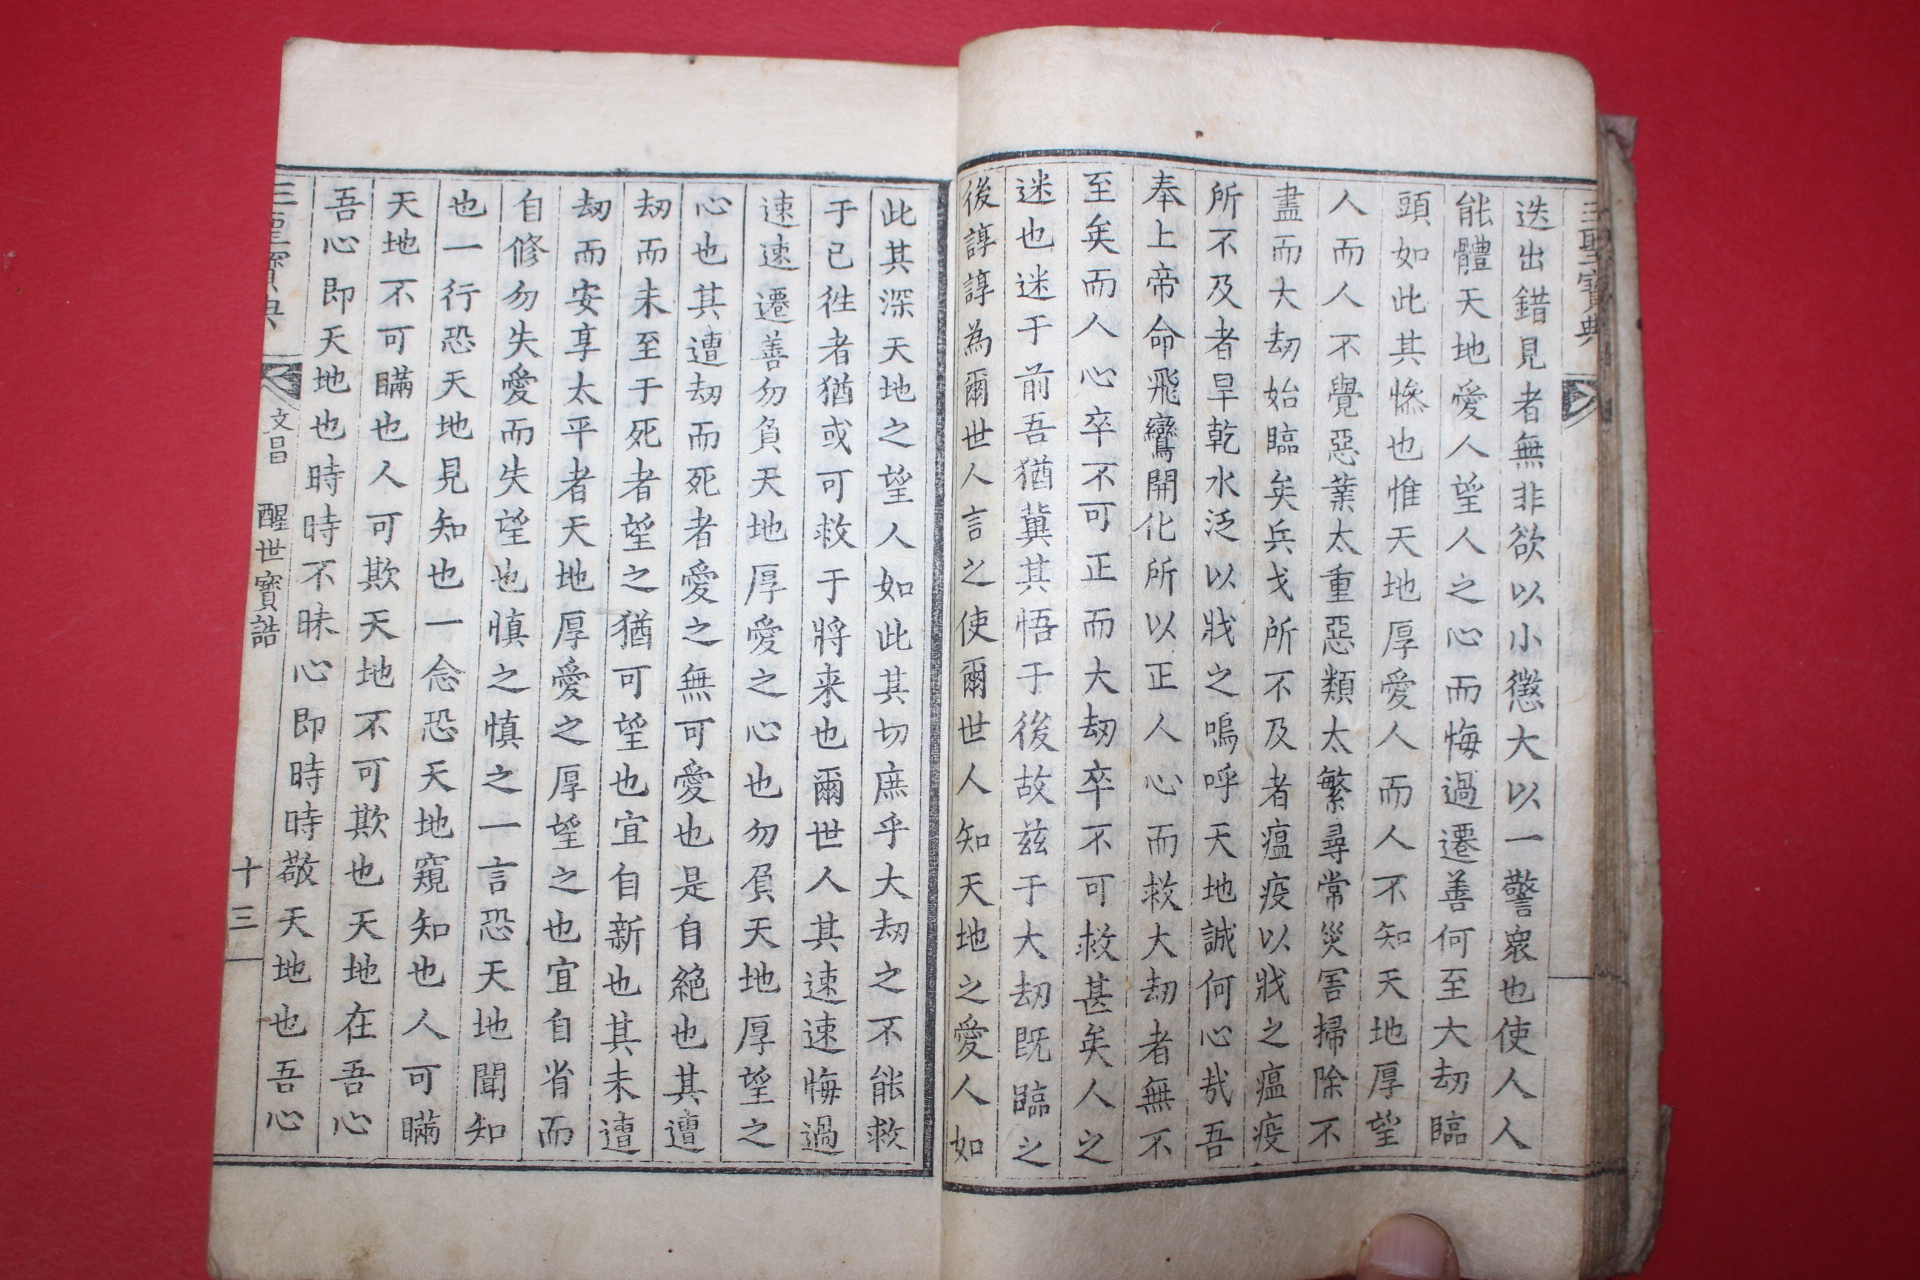 三聖寶典
迭出錯見者無非欲以小懲大以一警衆也使人人
能體天地愛人望人之心而悔過遷善何至大刼臨
頭如此其慘也惟天地厚愛人而人不知天地厚望
人而人不覺惡業太重惡類太繁尋常災害掃除不
盡而大刼始臨矣兵戈所不及者瘟疫以戕之瘟疫
所不及者旱乾水泛以戕之嗚呼天地誠何心㢤吾
奉上帝命飛鸞開化所以正人心而救大刼者無不
至矣而人心卒不可正而大刼卒不可救甚矣人之
迷也迷于前吾猶冀其悟于後故玆于大刼既臨之
後諄諄為爾世人言之使爾世人知天地之愛人如
此其深天地之望人如此其切庶乎大刼之不能救
于已徃者猶或可救于將来也爾世人其速速悔過
速速遷善勿負天地厚愛之心也勿負天地厚望之
心也其遭刼而死者愛之無可愛也是自絕也其遭
刼而未至于死者望之猶可望也宜自新也其未遭
刼而安享太平者天地厚愛之厚望之也宜自省而
自修勿失愛而失望也慎之慎之一言恐天地聞知
也一行恐天地見知也一念恐天地窺知也人可瞞
天地不可瞞也人可欺天地不可欺也天地在吾心
吾心即天地也時時不昧心即時時敬天地也吾心
三聖寶典 文昌 醒世寶誥 十三